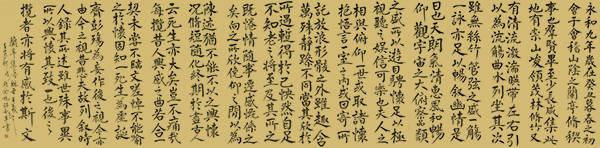 永和九年歲在癸丑暮春之初
會于會稽山陰之蘭亭脩稧
事也群賢畢至少長咸集此
地有崇山峻領茂林脩竹又
有清流激湍暎帶左右引
以為流觴曲水列坐其次
雖無絲竹管弦之盛一觴
一詠亦足以暢敘幽情是
日也天朗氣清惠風和暢
仰觀宇宙之大俯察品類
之盛所以遊目騁懷足以極
視聽之娛信可樂也夫人之
相與俯仰一世或取諸懷
抱悟言一室之內或因寄所
託放浪形骸之外雖趣舍
萬殊靜躁不同當其欣於
所遇暫得於己怏然自足
不知老之將至及其所之
既惓情隨事遷感慨係之
矣向之所欣俛仰之間以為
陳迹猶不能不以之興懷
況脩短隨化終期於盡古人
云死生亦大矣豈不痛哉
每攬昔人興感之由若合一
契未嘗不臨文嗟悼不能喻
之於懷固知一死生為虛誕
齊彭殤為妄作後之視今亦
由今之視昔悲夫故列敘時
人錄其所述雖世殊事異
所以興懷其致一也後之
攬者亦將有感於斯文